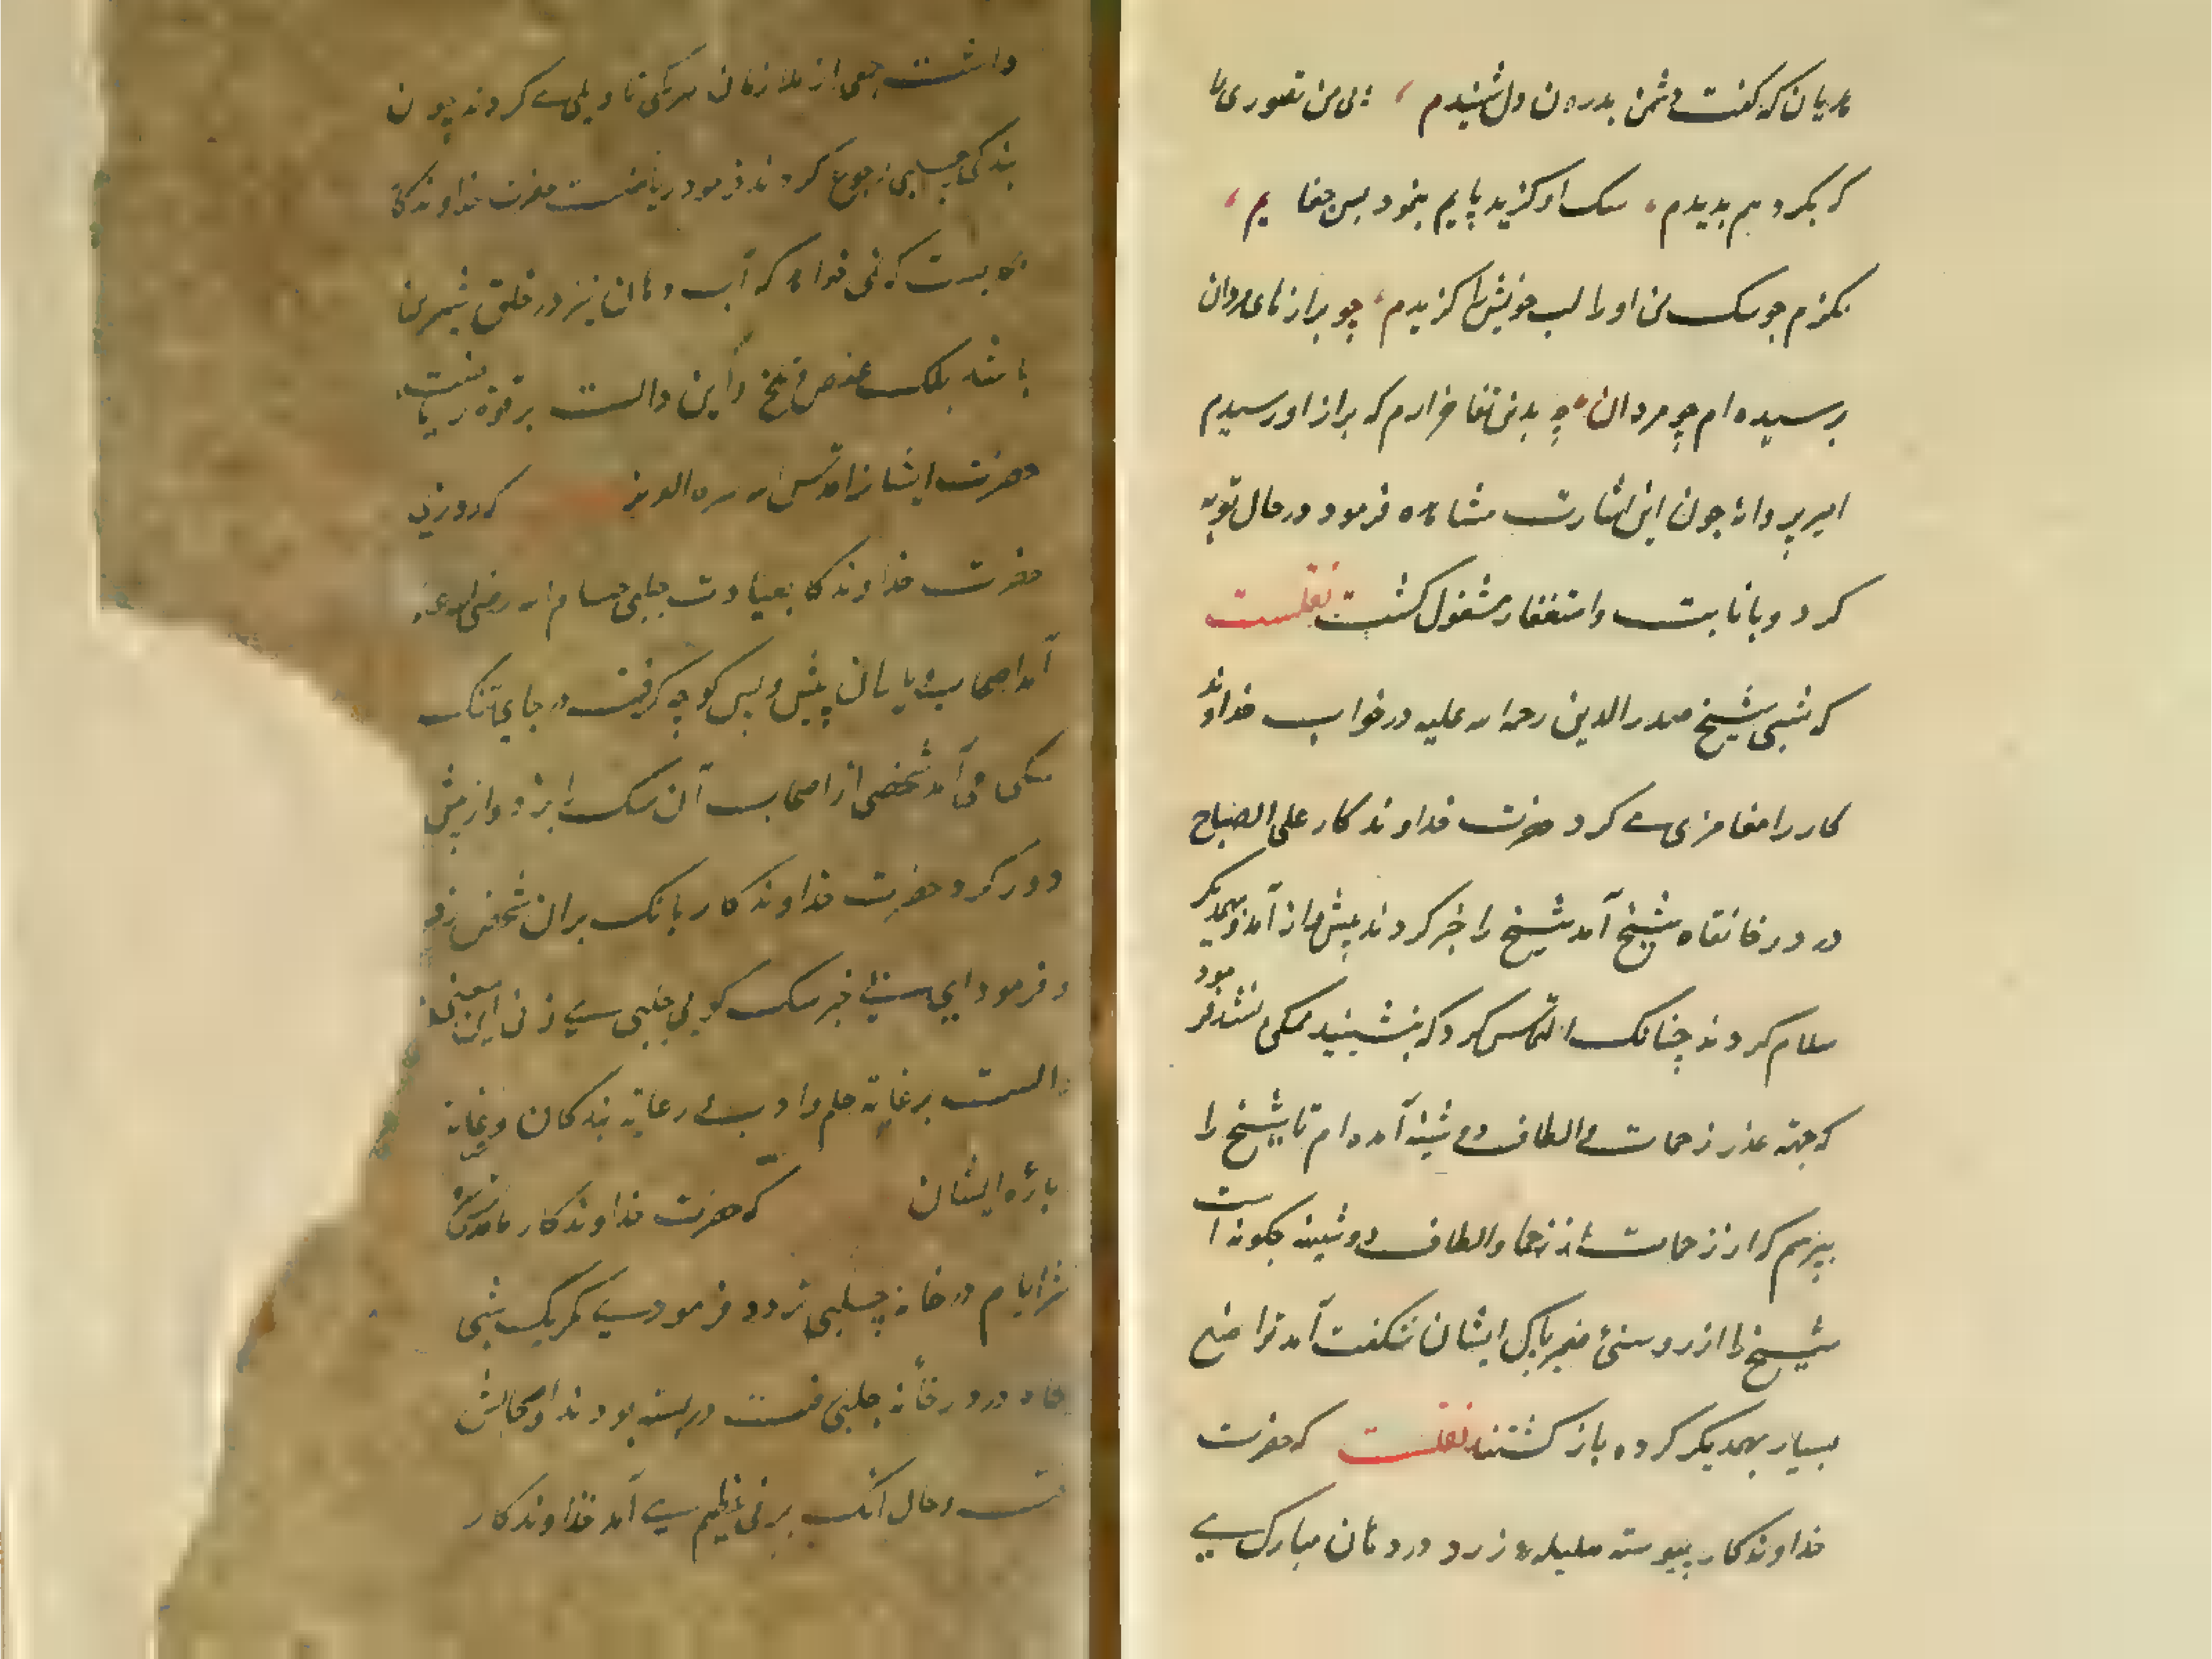 عریان که گفت دشمن بدرون دل شنیدم ، پی من تصوری را
که بکرد هم بدیدم ، سک او کزید پایم بنمود بس جفایم ،
نکزم چو سک من او را لب خویش را کزیدم ، چو براز های مردان
برسیده ام چو مردان ، چه بدین تفاخر ارم که براز او رسیدم
امیر پروانه چون این اشارت مشاهده فرمود در حال توبه
کرد و بانابت و استغفار مشغول کشت نقلست
که شبی شیخ صدر الدین رحمه الله علیه در خواب خداوند
کار را مغامزی می کرد حضرت خداوندکار علی الصباح
در در خانقاه شیخ آمد شیخ را خبر کردند پیش باز آمد و بهمدیکر
سلام کردند چنانک التماس کرد که بنشیند ممکن نشد فرمود
که جهت عذر زحمات و الطاف دوشینه آمده ام تا شیخ را
بپرسم که از زحمات و الطاف دوشینه چکونه است
شیخ را از روشنی ضمیر پاک ایشان شکفت آمد تواضع
بسیار بهمدیکر کرده باز کشتند نقلست که حضرت
خداوندکار پیوسته هلیله زرد در دهان مبارک می
داشت جمعی از ملازمان هر یکی تاویلی می کردند چون
بندکی چلبی رجوع کردند فرمود ریاضت حضرت خداوندکار
بست که نمی خواهد که آب دهان نیز در حلق شیرین
باشد بلک عفص و تلخ و این دالست بر قوة ریاضت
حضرت ایشان قدس الله سره العزیز که روزی
حضرت خداوندکار بعیادت چلبی حسام الدین رضی الله عنه
آمد اصحاب و یاران پیش و پس کوچه کرفت در جای تنک
سکی می آمد شخصی از اصحاب آن سک را بزد و از پیش
دور کرد حضرت خداوندکار بانک بران شخص زد
و فرمود ای بی خبر سک کوی چلبی می زنی این معنی
دالست بر غایة حلم و ادب و رعایة بندکان و عنایة
باره ایشان که حضرت خداوندکار ما قدس سره
اکثر ایام در خانه چلبی تردد فرمودی مکر یک شبی
در در خانه چلبی رفت در بسته بودند و حالش
رحال آنک برفی عظیم می آمد خداوندکار